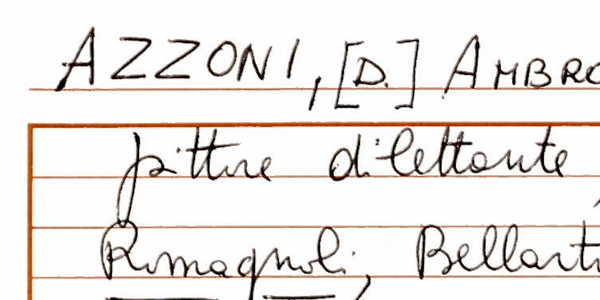 AZZONI, [D.] AMBRO
pittore dilettante
Romagnoli, Bellarti